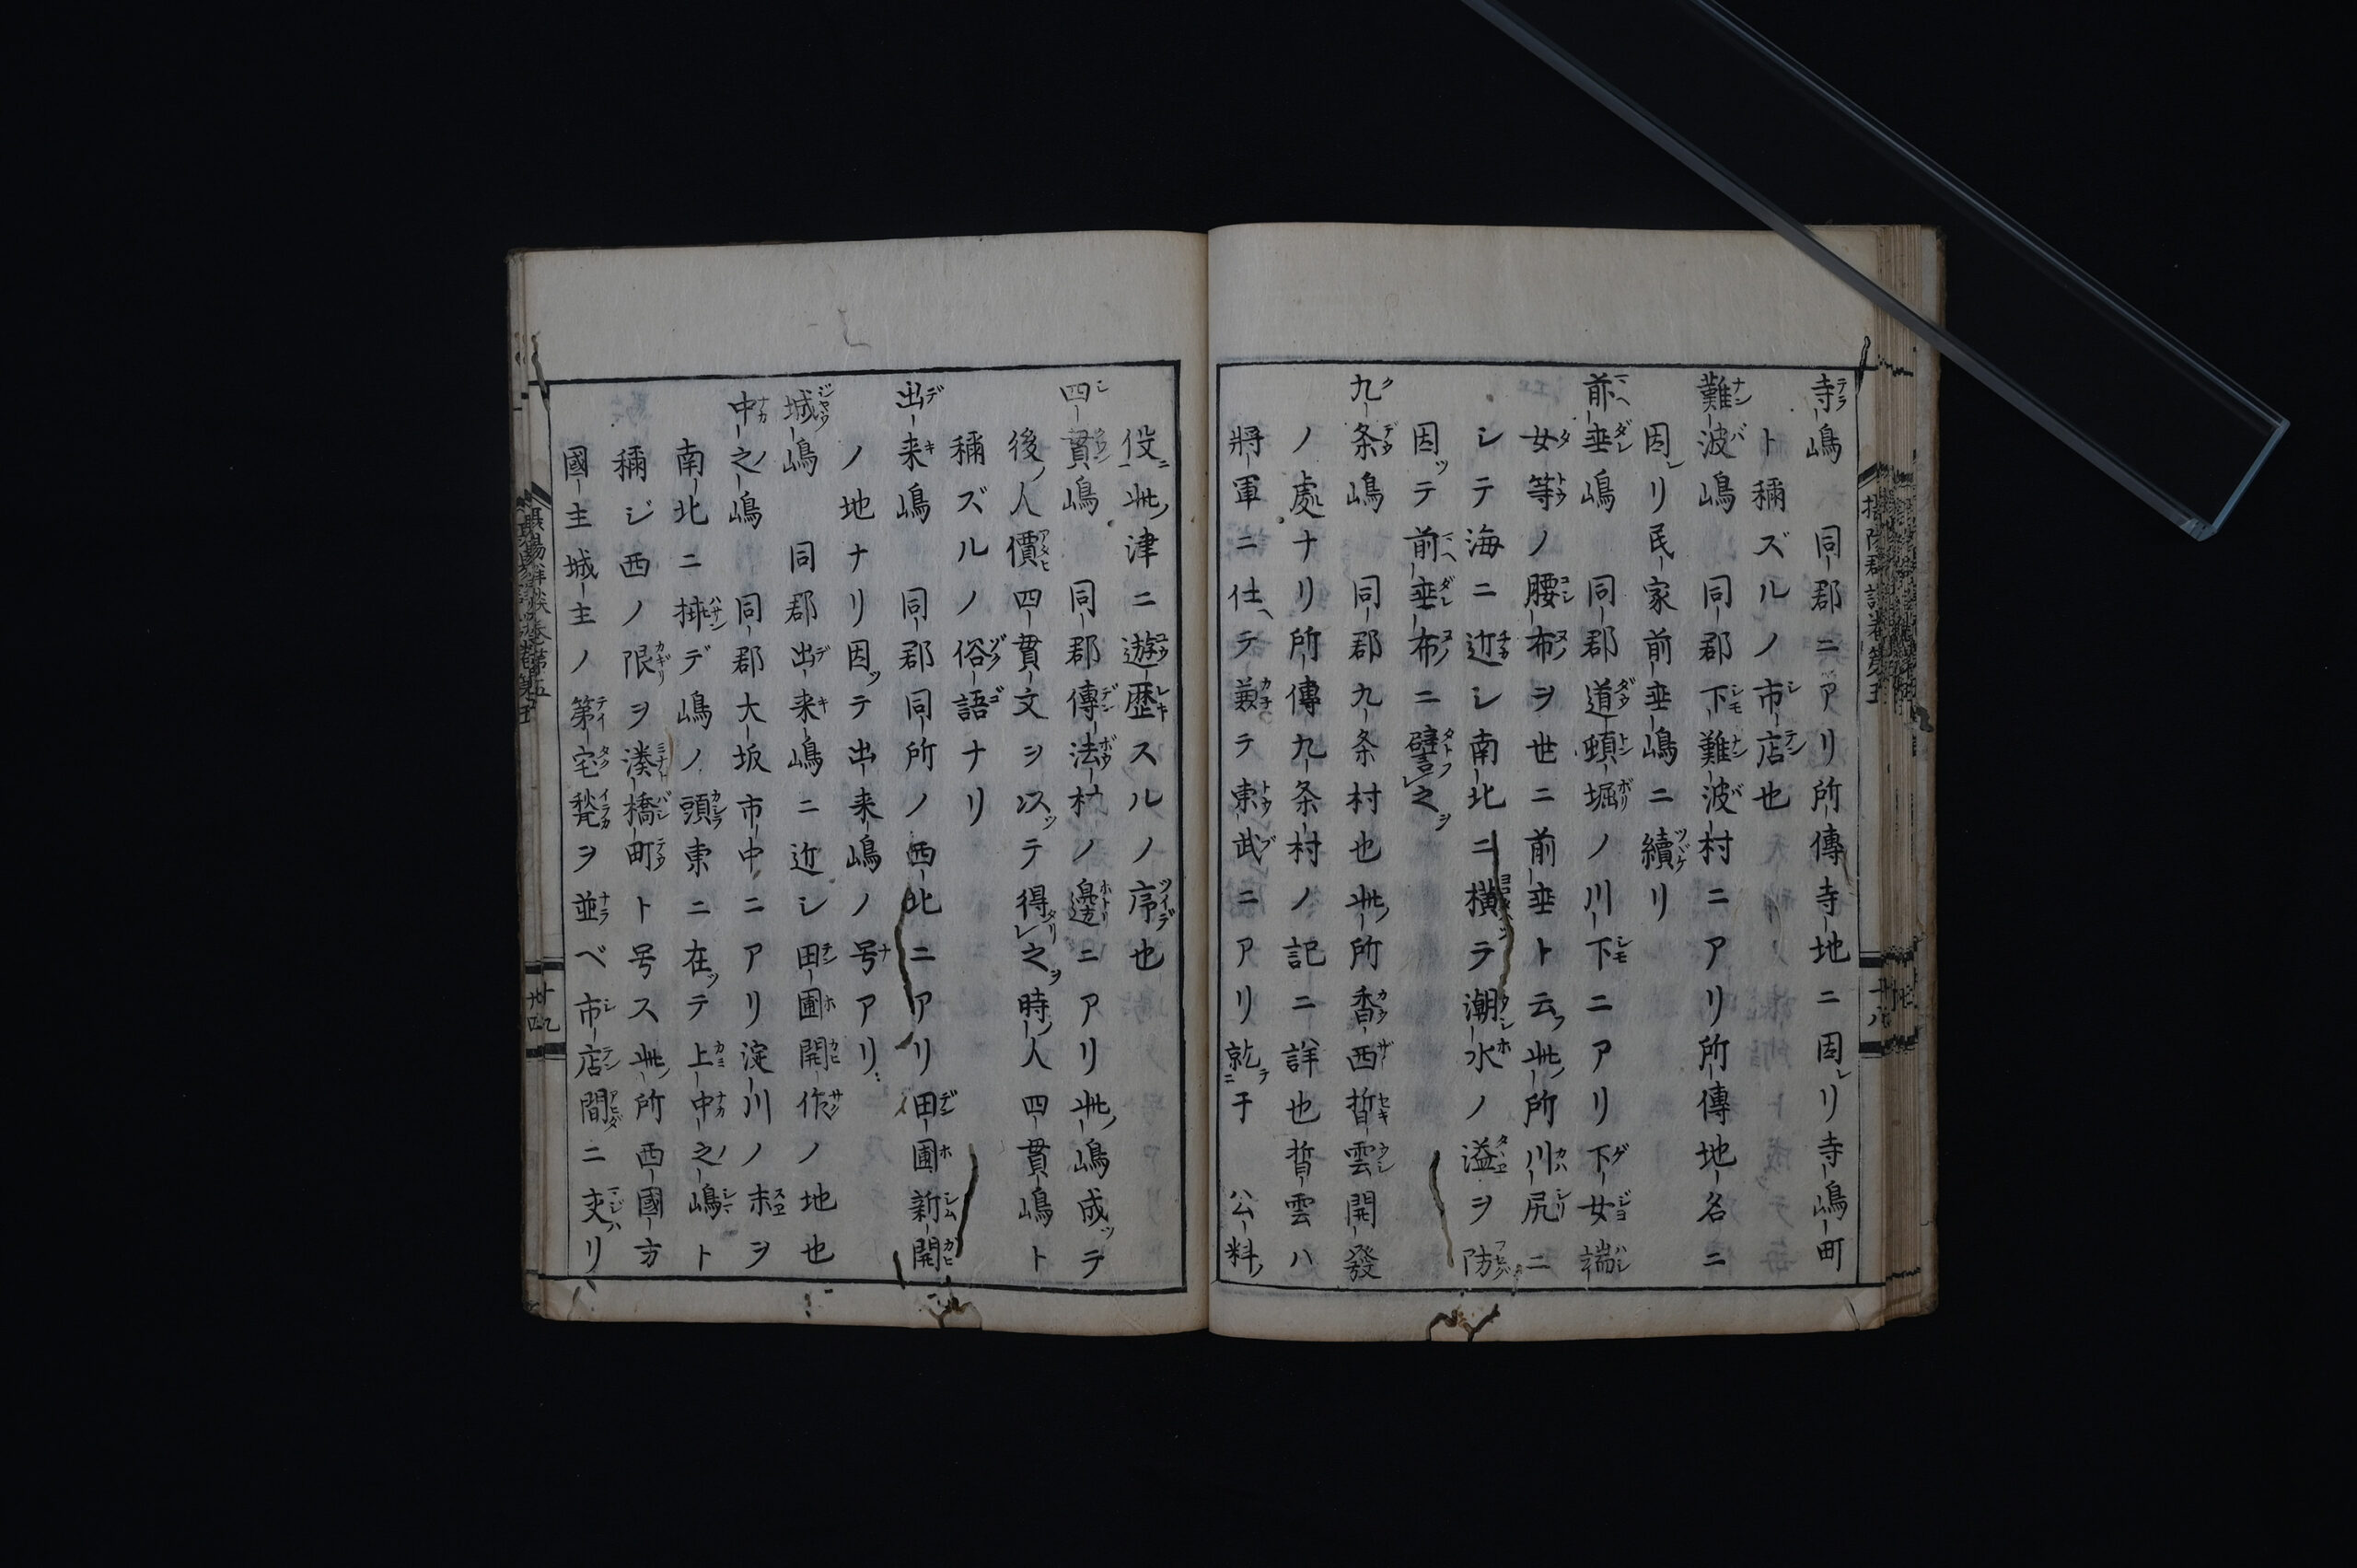 寺嶋　同郡ニアリ所傳寺地ニ因リ寺嶋町
ト稱ズルノ市店也
難波嶋　同郡下難波村ニアリ所傳地名ニ
因リ民家前垂嶋ニ續リ
前垂嶋　同郡道頓堀ノ川下ニアリ下女端
女等ノ腰布ヲ世ニ前垂ト云此所川尻ニ
シテ海ニ近シ南北ニ横テ潮水ノ溢ヲ防
因テ前垂布ニ譬之
九条嶋　同郡九条村也此所香西晢雲開發
ノ處ナリ所傳九条村ノ記ニ詳也晢雲ハ
將軍ニ仕テ兼テ東武ニアリ就于　公料
役此津ニ遊歴スルノ序也
四貫嶋　同郡傳法村ノ邉ニアリ此嶋成テ
後人價四貫文ヲ以テ得之時人四貫嶋ト
稱ズルノ俗語ナリ
出来嶋　同郡同所ノ西北ニアリ田圃新開
ノ地ナリ因テ出来嶋ノ号アリ
城嶋　同郡出来嶋ニ近シ田圃開作ノ地也
中之嶋　同郡大坂市中ニアリ淀川ノ末ヲ
南北ニ挾デ嶋ノ頭東ニ在テ上中之嶋ト
稱ジ西ノ限ヲ湊橋町ト号ス此所西國方
國主城主ノ第宅甃ヲ並ベ市店間ニ交リ